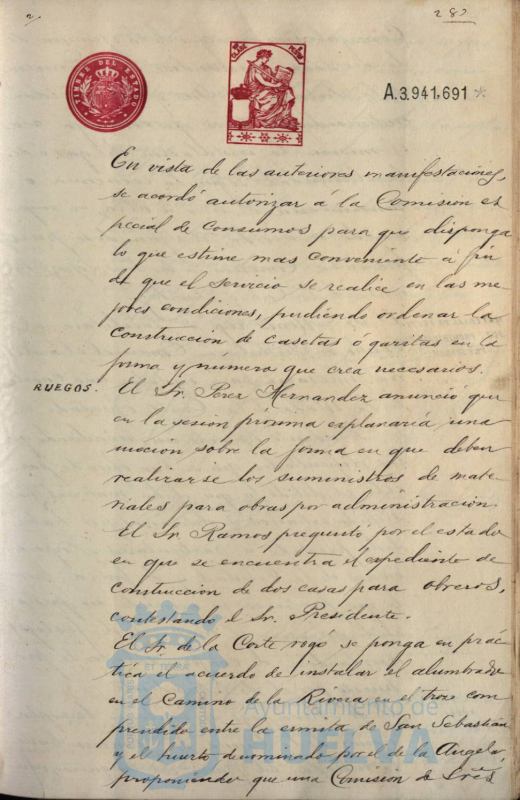 282
TIMBRE DEL ESTADO
A.3.941,691
En vista de las anteriores manifestaciones,
se acordó autorizar á la Comision es
pecial de Consumos para que disponga
lo que estime mas conveniente á fin
de que el servicio se realice en las me
jores condiciones, pudiendo ordenar la
construccion de casetas ó garitas en la
forma y número que crea necesarios.
RUEGOS.
El Sr. Perez Hernandez anunció que
en la sesion próxima esplanaría una
mocion sobre la forma en que deben
realizarse los suministros de mate-
riales para obras por administracion.
El Sr. Ramos preguntó por el estado
en que se encuentra el espediente de
construccion de dos casas para obreros,
contestando el Sr. Presidente.
El Sr. de la Corte rogó se ponga en prác
tica el acuerdo de instalar el alumbrado
en el Camino de la Rivera en el trozo com
prendido entre la ermita de San Sebastian
y el puerto denominado por el de la Angela,
proponiendo que una Comisión de Sres
Ayuntamiento de
HUELVA